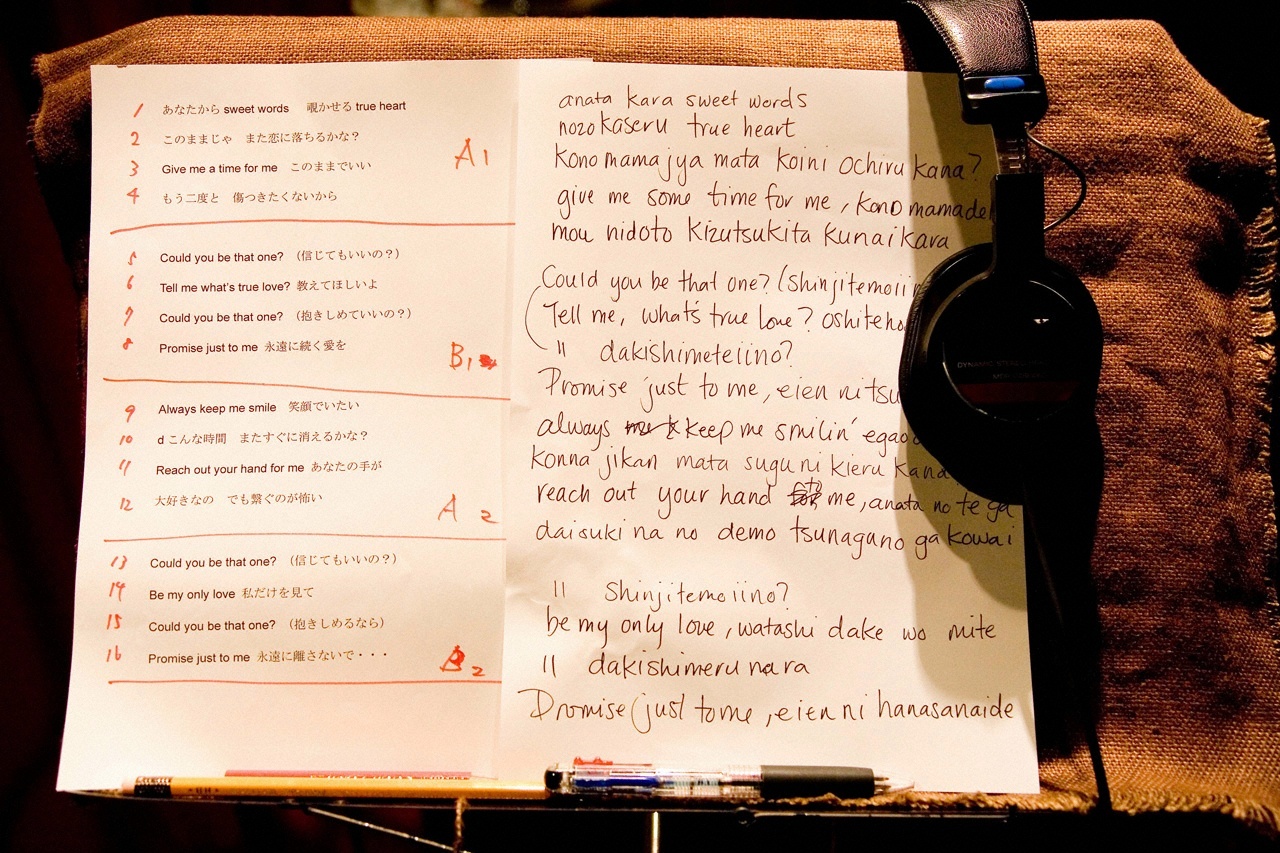 1 あなたから sweet words 覗かせる true heart
2 このままじゃ また恋に落ちるかな？
3 Give me a time for me このままでいい
4 もう二度と 傷つきたくないから
A1
5 Could you be that one? （信じてもいいの？）
6 Tell me what's true love? 教えてほしいよ
7 Could you be that one? （抱きしめていいの？）
8 Promise just to me 永遠に続く愛を
B1
9 Always keep me smile 笑顔でいたい
10 d こんな時間 またすぐに消えるかな？
11 Reach out your hand for me あなたの手が
12 大好きなの でも繋ぐのが怖い
A2
13 Could you be that one? （信じてもいいの？）
14 Be my only love 私だけを見て
15 Could you be that one? （抱きしめるなら）
16 Promise just to me 永遠に離さないで・・・
B2
anata kara sweet words
nozokaseru true heart
Kono mama jya mata koini ochiru kana?
give me some time for me, kono mamade
mou nidoto kizutsukita kunai kara
Could you be that one? (Shinjitemoii
Tell me, what's true love? oshiteho
" dakishimeteiino?
Promise just to me, eien ni tsu
always keep me smilin' egao
konna jikan mata sugu ni kieru kana
reach out your hand to me, anata no te ga
daisuki na no demo tsunagano ga kowai
" Shinjitemoiino?
be my only love, watashi dake wo mite
" dakishimeru nara
Promise (just to me, eien ni hanasanaide
DYNAMIC STEREO